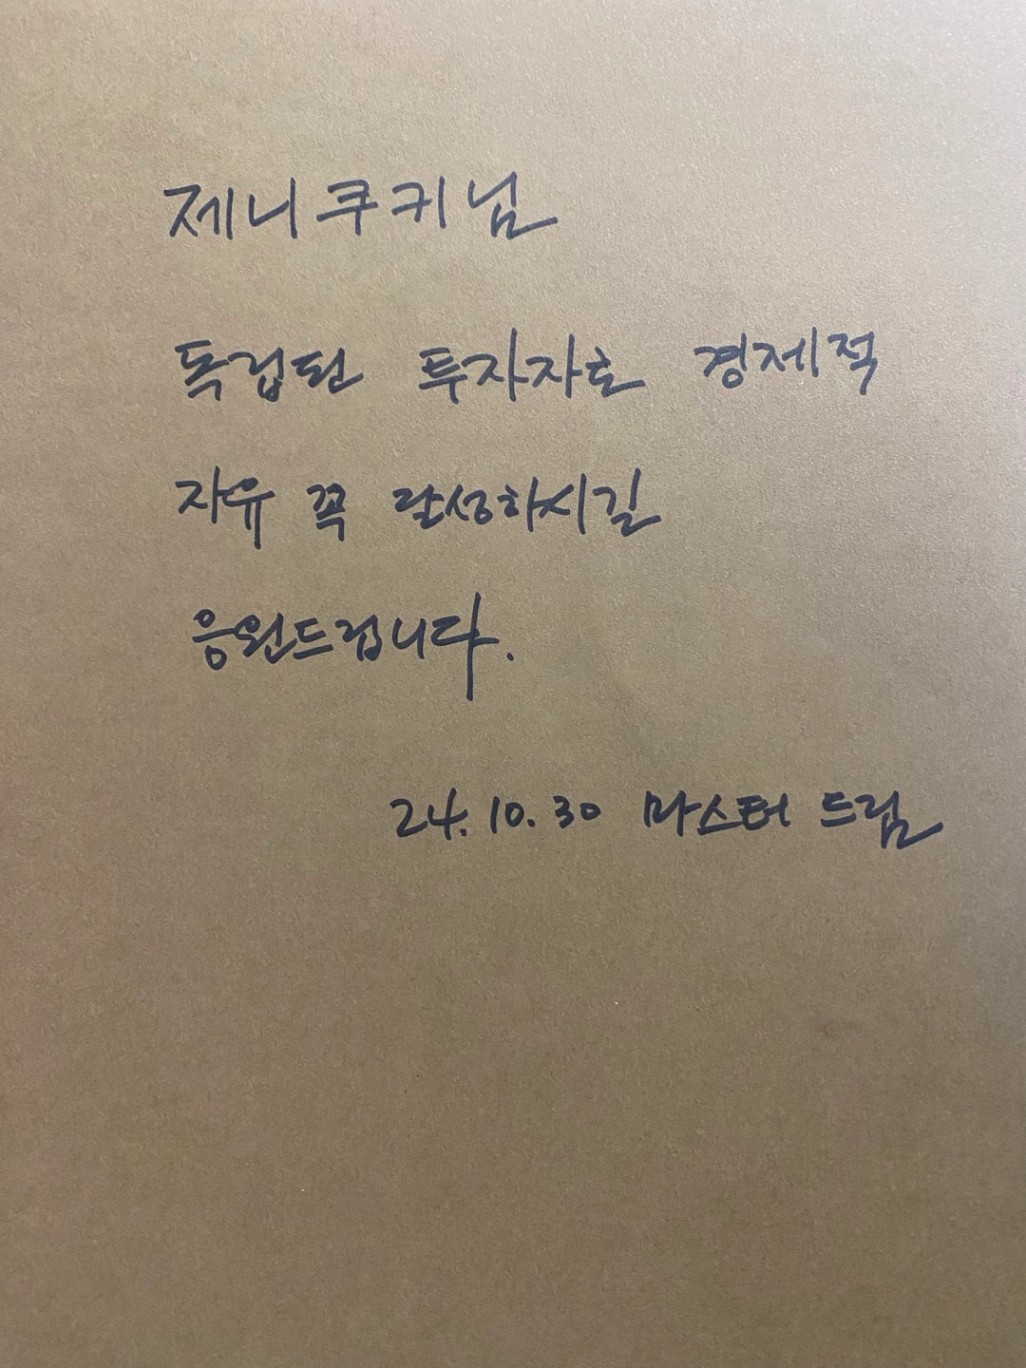 제니쿠키님
독립된 투자자로 경제적
자유 꼭 달성하시길
응원드립니다.
24.10.30 마스터 드림